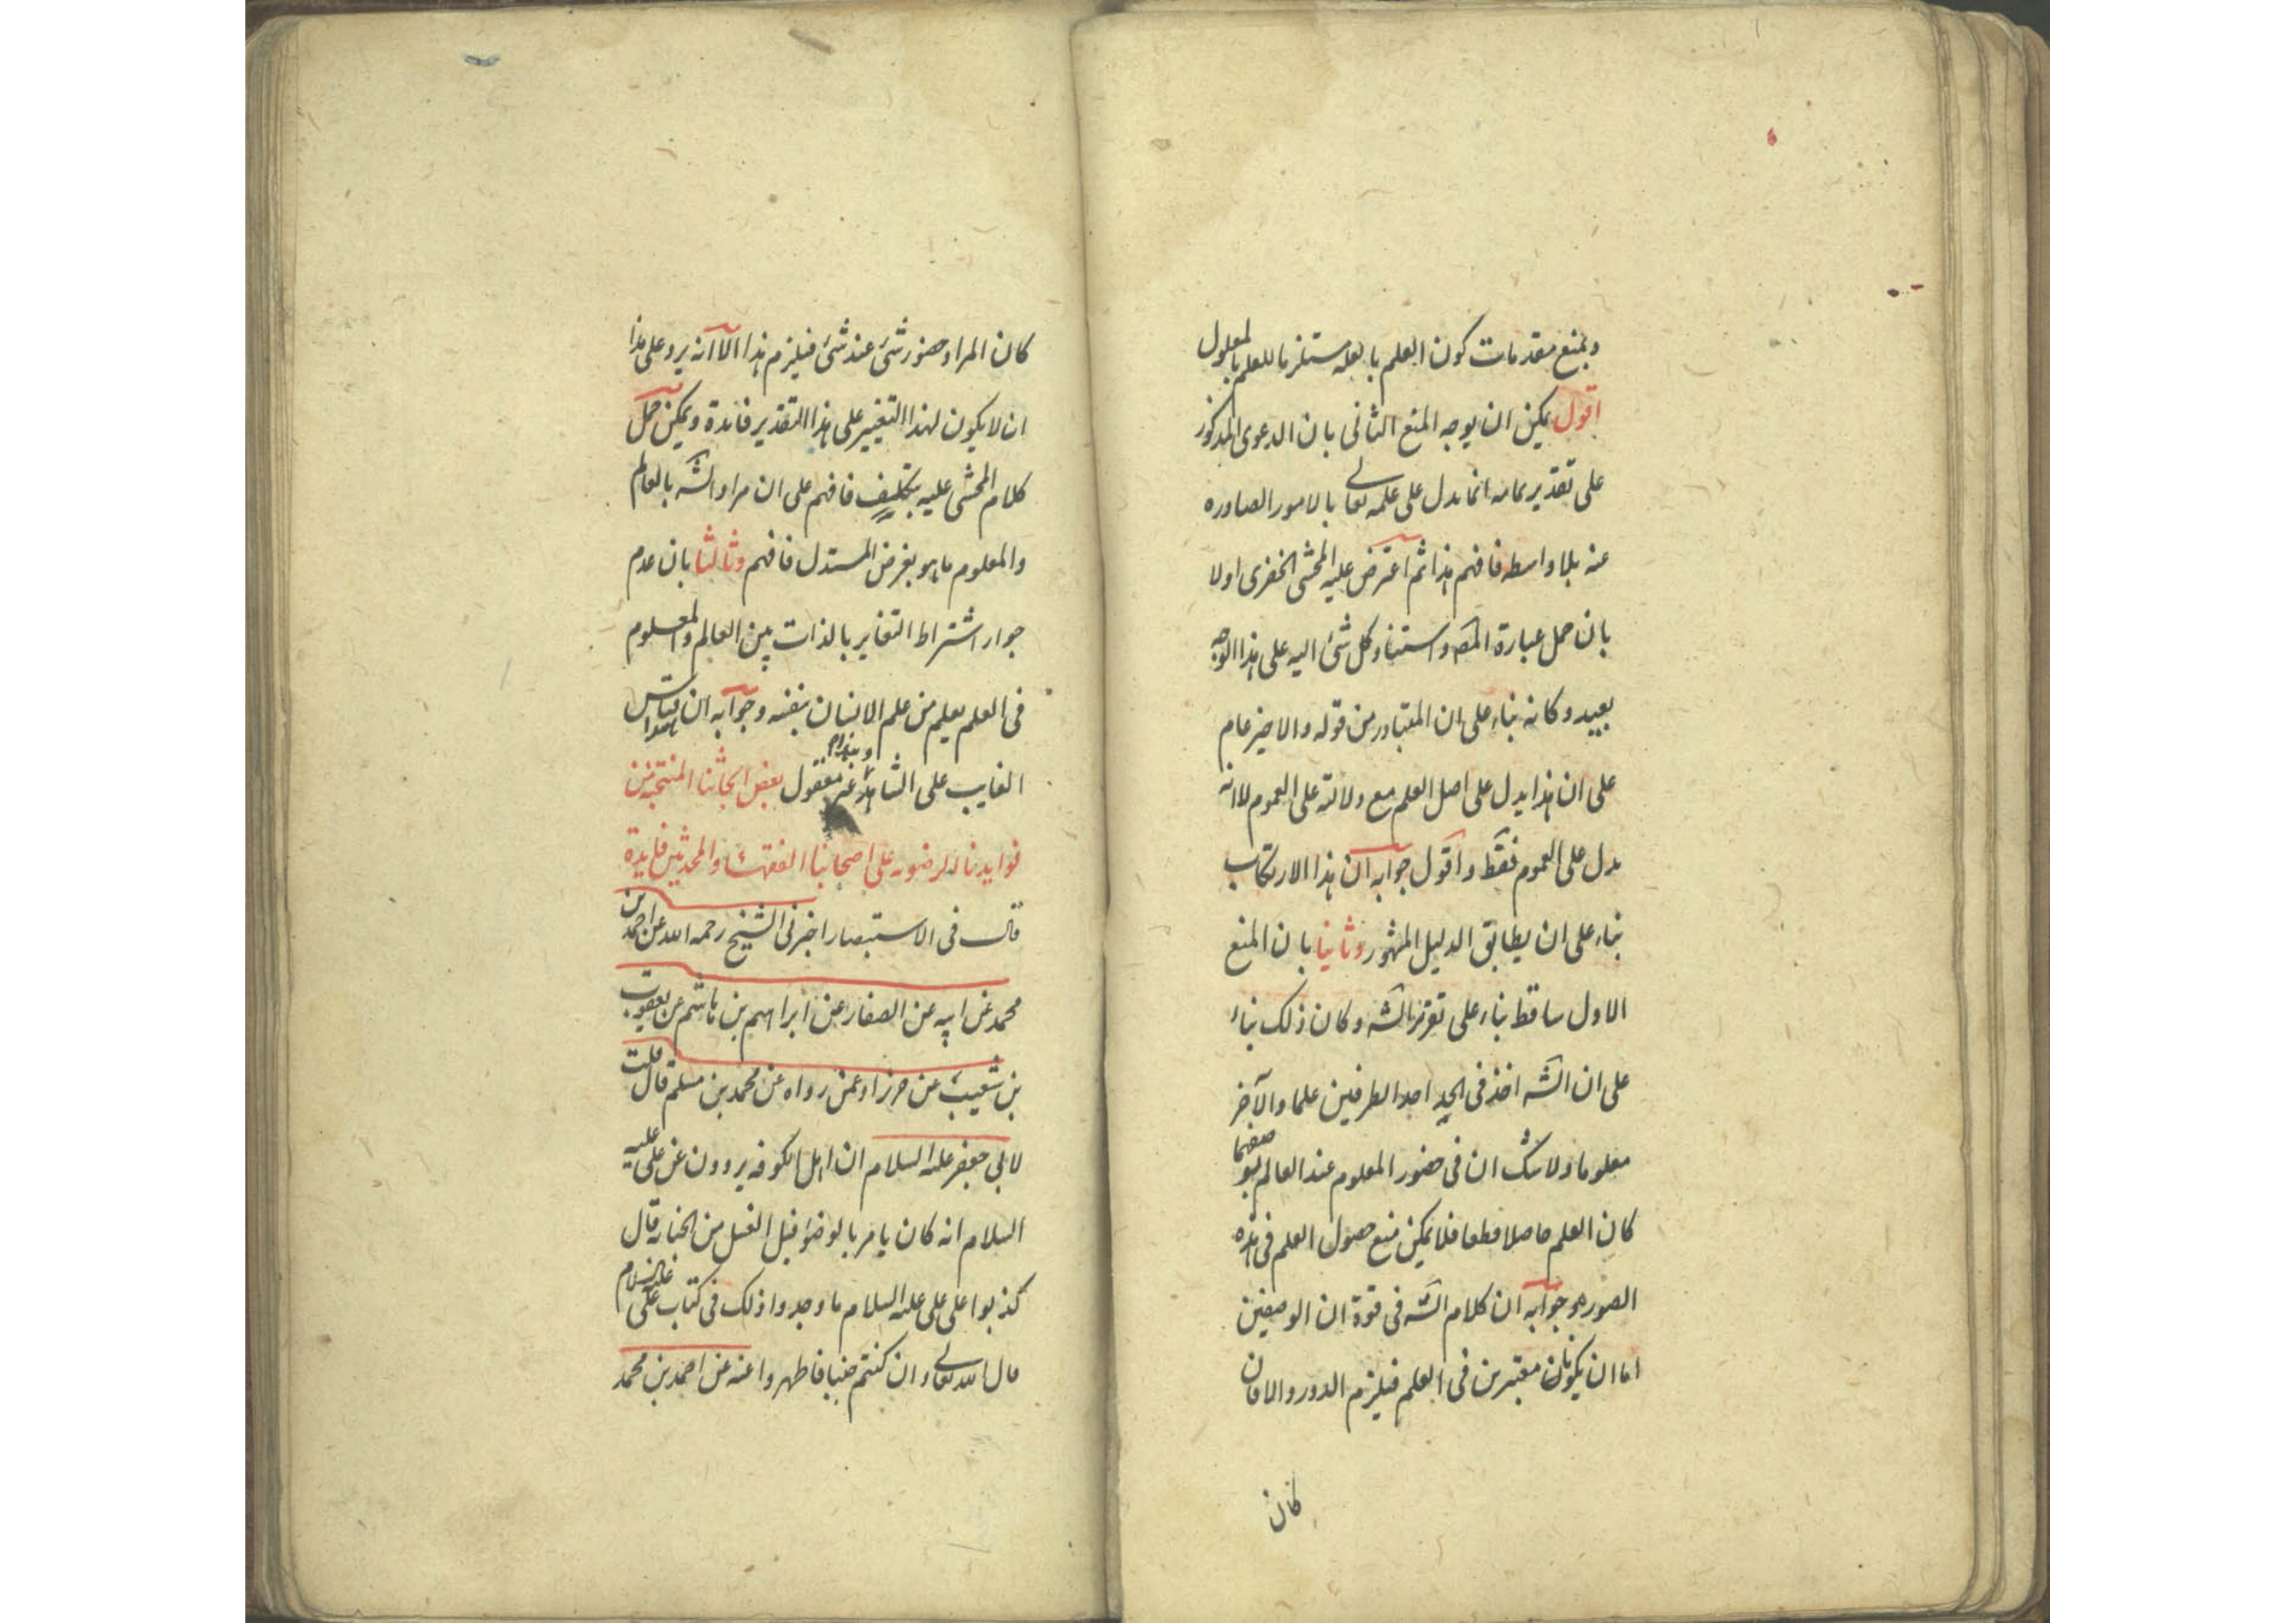 وبمنع مقدمات كون العلم بالعلة مستلزما للعلم بالمعلول
اقول يمكن ان يوجه المنع الثانى بان الدعوى المذكور
على تقدير تمامه انما يدل على علمه تعالى بالامور الصادره
عنه بلا واسطه فافهم هذا ثم اعترض عليه المحشى الخفرى اولا
بان حمل عبارة المصه واستناد كل شئ اليه على هذا الوجه
بعيد وكانه بناء على ان المتبادر من قوله والاخير عام
على ان هذا يدل على اصل العلم مع دلالته على العموم لا انه
يدل على العموم فقط واقول جوابه ان هذا الارتكاب
بناء على ان يطابق الدليل المشهور وثانيا بان المنع
الاول ساقط بناء على تقرير الشه وكان ذلك بناء
على ان الشه اخذ فى الحد احد الطرفين علما والآخر
معلوما ولا شك ان فى حضور المعلوم عند العالم بوصفهما
كان العلم حاصلا قطعا فلا يمكن منع حصول العلم فى هذه
الصوره وجوابه ان كلام الشه فى قوة ان الوصفين
اما ان يكونان معتبرين فى العلم فيلزم الدور والا فان
كان
كان المراد حضور شئ عند شئ فيلزم هذا الا انه يرد على هذا
ان لا يكون لهذا التغيير على هذا التقدير فائدة ويمكن حمل
كلام المحشى عليه بتكليف فافهم على ان مراد الشه بالعالم
والمعلوم ما هو بغرض المستدل فافهم وثالثا بان عدم
جواز اشتراط التغاير بالذات بين العالم والمعلوم
فى العلم يعلم من علم الانسان بنفسه وجوابه ان قياس
الغايب على الشاهد غير معقول بعض ابحاثنا المنتخبه من
فوايدنا على اصحابنا الفقهاء والمحدثين فايدة
قال فى الاستبصار اخبرنى الشيخ رحمه الله عن احمد بن
محمد عن ابيه عن الصفار عن ابراهيم بن هاشم عن يعقوب
بن شعيب عن حرز او عمن رواه عن محمد بن مسلم قال قلت
لابى جعفر عليه السلام ان اهل الكوفه يروون عن على عليه
السلام انه كان يامر بالوضوء قبل الغسل من الجنابه قال
كذبوا على على عليه السلام ما وجدوا ذلك فى كتاب على عليه السلام
قال الله تعالى وان كنتم جنبا فاطهروا عنه عن احمد بن محمد